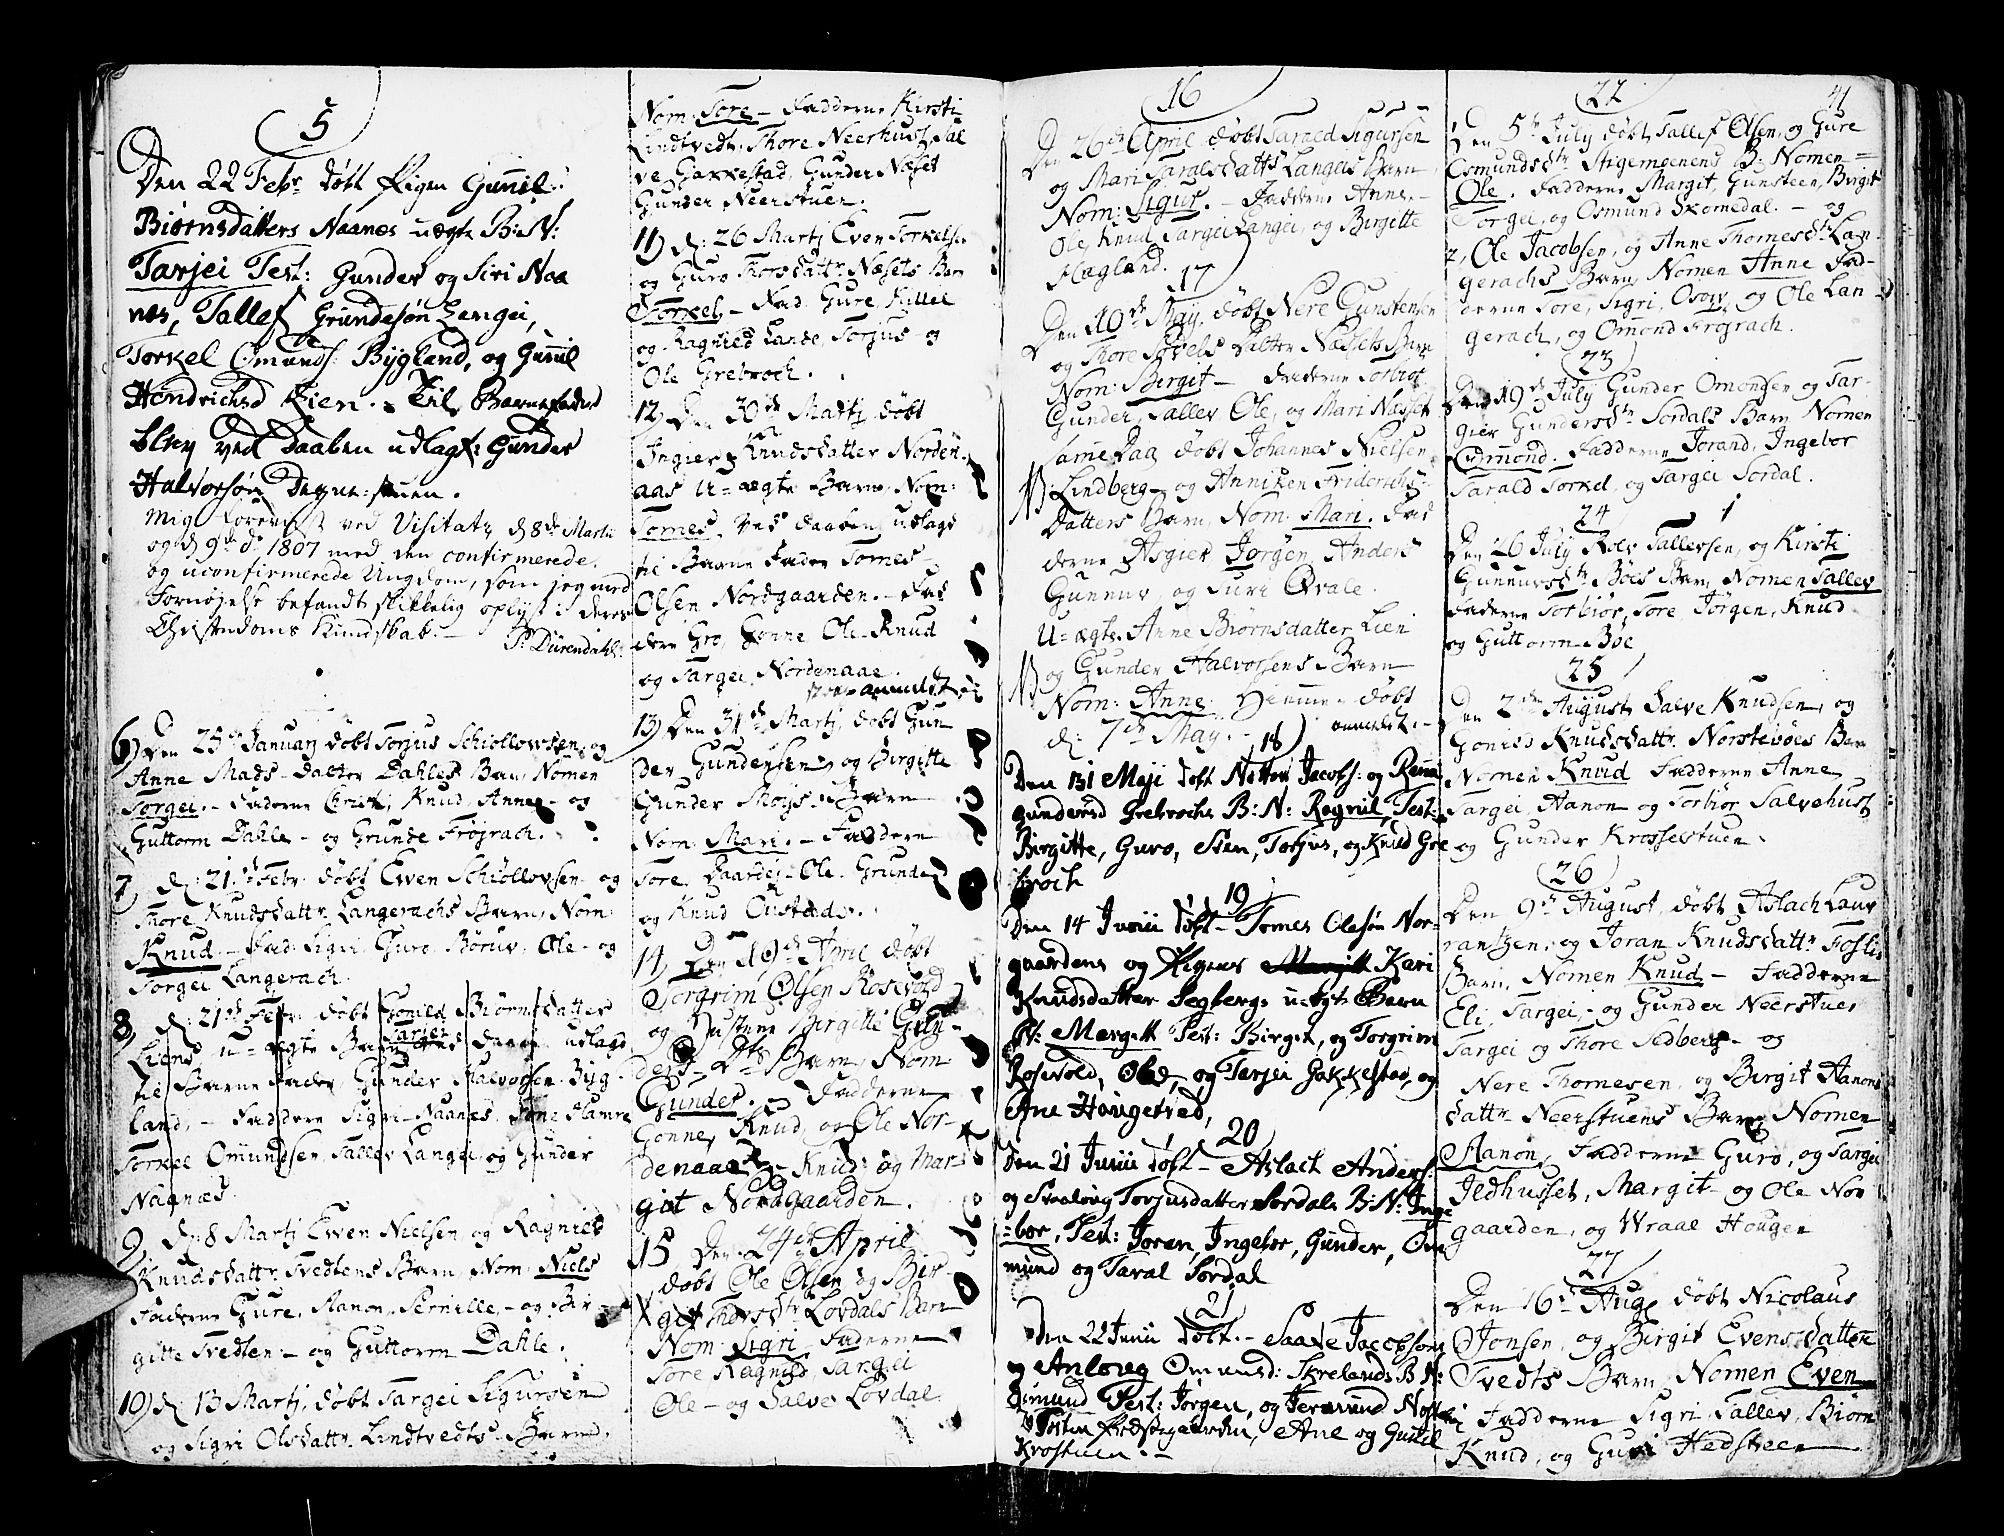 5
Den 22 Febr døbt Pigen Gunil
Biørnsdatters Naanes uægte B: N:
Tarjei Test: Gunder og Siri Naa
nes, Tallef Grundesøn Langei,
Torkel Omunds: Bygland, og Gunil
Hendrichsd Lien. Til Barnefader
blev ved Daaben udlagt: Gunder
Halvorsøn Degne-stuen.
Mig forevist ved Visitatz d 8de Martii
og d 9de do 1807 med den confirmerede
og uconfirmerede Ungdom, som jeg med
Fornøjelse befandt skikkelig oplyst i deres
Christendoms Kundskab.
P. Dürendahl
6) Den 25de Januarj døbt Torjus Schiollowsen, og
Anne Mads-datter Dahles Barn, Nomen
Torgei. - Faderne Christi, Knud, Anne, og
Guttorm Dahle - og Grunde Frøjrach.
7, d: 21de Febr. døbt Ewen Schiollovsen og
Thore Knudsdattr Langerachs Barn, Nom:
Knud. - Fad: Sigri, Guro, Børuv, Ole - og
Torgei Langerach.
8, d: 21de Febr døbt Gonild Biørnsdatter
Tarjei
Liens u-ægte Barn ved Daaben udlagd
til Barne Fader Gunder Halvorsen Byg-
land, - Faddere Sigri Naanes, Tone Hamre
Torkel Omundsen, Tallev Langei, og Gunder
Naanes.
9, d: 8 Martj Ewen Nielsen og Ragnild
Knudsdattr Tvedtens Barn, Nom: Niels
Faderne Gure, Aanon, Pernille, - og Bir-
gitte Tvedten - og Guttorm Dahle.
10) d: 13 Martj, døbt Targei Sigursen
og Sigri Olsdattr Lindtvedts Barn.
Nom: Tore - Fadderne Kirsti
Lindtvedt, Thore Neerhust, Sal
ve Gakkestad, Gunder Næset
Gunder Neerstuen.
11) d: 26 Martj Even Torkelse
og Guro Thorsdattr. Næsets Barn
Torkel - Fad: Gure, Killil
og Ragnild Lande, Torjus - og
Ole Grebroch.
12, Den 30de Martj døbt
Ingier Knudsdatter Norden-
aas U-ægte Barn, Nom:
Tomes. Ved daaben udlagd
til Barne Fader Tomes
Olsen Nordgaarden. - Fad
dere Gro, Gonne, Ole, Knud
og Targei Nordenaae.
anmeldt
13) Den 31de Martj, døbt Gun
der Gundersen, og Birgitte
Gunder Moijs Barn
Nom: Mari. - Faddere
Tore, Taarder, Ole, Grunde
og Knud Oustads.
14, Den 19de April døbt
Torgrim Olsen Rosevold
og Hustrue Birgitte Gun-
ders-Dtr Barn, Nom
Gunder. - Fadderne
Gonne, Knud, og Ole Nor-
denaae, - Knud og Mar-
git Nordgaarden.
15 Den 24de April
døbt Ole Olsen og Bir-
git Thorsdtr Løvdals Barn
Nom: Sigri Faderne
Tore, Ragnild, Targei
Ole - og Salve Løvdal.
16
Den 26de April døbt Tarald Sigursen
og Mari Taralsdatts Langels Barn
Nom: Sigur. - Faddere Anne, -
Ole, Knud, Targei Langei, og Birgitte
Hægland.
17
Den 10de May, døbt Nere Gunstensen
og Thore Sovels Datter Næssets Barn
Nom: Birgit - Faderne Torbiør
Gunder, Tallev, Ole, og Mari Nasset
Samme Dag døbt Johannes Nielsen
Lindberg - og Anniken Friderichs-
Datters Barn, Nom: Mari. Fad
derne Asgier, Jørgen, Anders
Gunnuv, og Turi Qvale.
U-ægte. Anne Biørnsdatter Lien
og Gunder Halvorsens Barn
Nom: Anne. Hjemme døbt
d: 7de May. - anmeldt. -
18
Den 31 Maji døbt Nettori Jacobs: og Remi
gundersd Grebrochs B: N: Ragnil, Test:
Birgitte, Guro, Sten, Torjus, og Knud Gre
broch
19
Den 14 Junii døbt - Tomes Olesøn Nor-
gaardens og Pigens Margitt Kari
Knudsdatter Segbergs uægte Barn
N: Margett Test: Birget, og Torgrim
Rosevold, Oled, og Tarjei Gakkestad, og
Ane Hougetved,
20
Den 21 Junii døbt - Aslach Anders:
og Svalaug Torjusdatter Sordals B: N: Inge
-bor, Test: Joran, Ingebor, Gunder, Om
mund og Taral Sordal
21
Den 22 Junii døbt. - Saave Jacobsøns
og Anlaug Omunsd: Skrelands B N:
Osmund Test: Jørgen, og Jeramund No
Tosten Prestegaarden, Ane og Gunil
Krostuen. -
22
41
Den 5te July døbt Tallef Olsen, og Gure
Osmundsdtr Stigemoenens B: Nomen
Ole. Fadderne Margit, Gunsteen, Birgit
Torgei, og Osmund Skomedal. - og
2, Ole Jacobsen, og Anne Thomesdtr Lan-
gerachs Barn, Nomen Anne Fad-
derne Tore, Sigri, Osouv, og Ole Lan-
gerach, og Omond Frøjrach.
23
Den 19de July Gunder Omondsen og Tar-
gier Gundersdtr Sordals Barn Nomen
Omond. Fadderne Jorand, Ingebor
Tarald Torkel, og Targei Sordal.
24
Den 26 July Roev Tallevsen, og Kirsti
Gunnuvsdtr Bøes Barn Nomen Tallev
Faderne Torbiør, Tore, Jørgen, Knud
og Guttorm Boe
25
Den 2den August, Salve Knudsen, og
Gonild Knudsdattr. Norstebøes Barn
Nomen Knud Fadderne Anne
Targei, Aanon og Torbiør Salvehust
og Gunder Krossestuen.
26
Den 9de August, døbt Aslach Lauv
rantzen, og Joran Knudsdattr Foslis
Barn, Nomen Knud - Fadderne
Eli, Targei, - og Gunder Neerstues
Targei og Thore Sedberg - og
Nere Thomesen, og Birgit Aanons
dattr Neerstuens Barn Nomen
Aanon, Fadderne Guro, og Targei
Ildhusset, Margit - og Ole Nor
gaarden, og Wraal Hougen
27
Den 16de Aug. døbt Nicolaus
Jonsen, og Birgit Evensdatter
Tvedts Barn, Nomen Even
Fadderne Sigri, Tallev, Biørn
Knud, og Guri Hedsteen